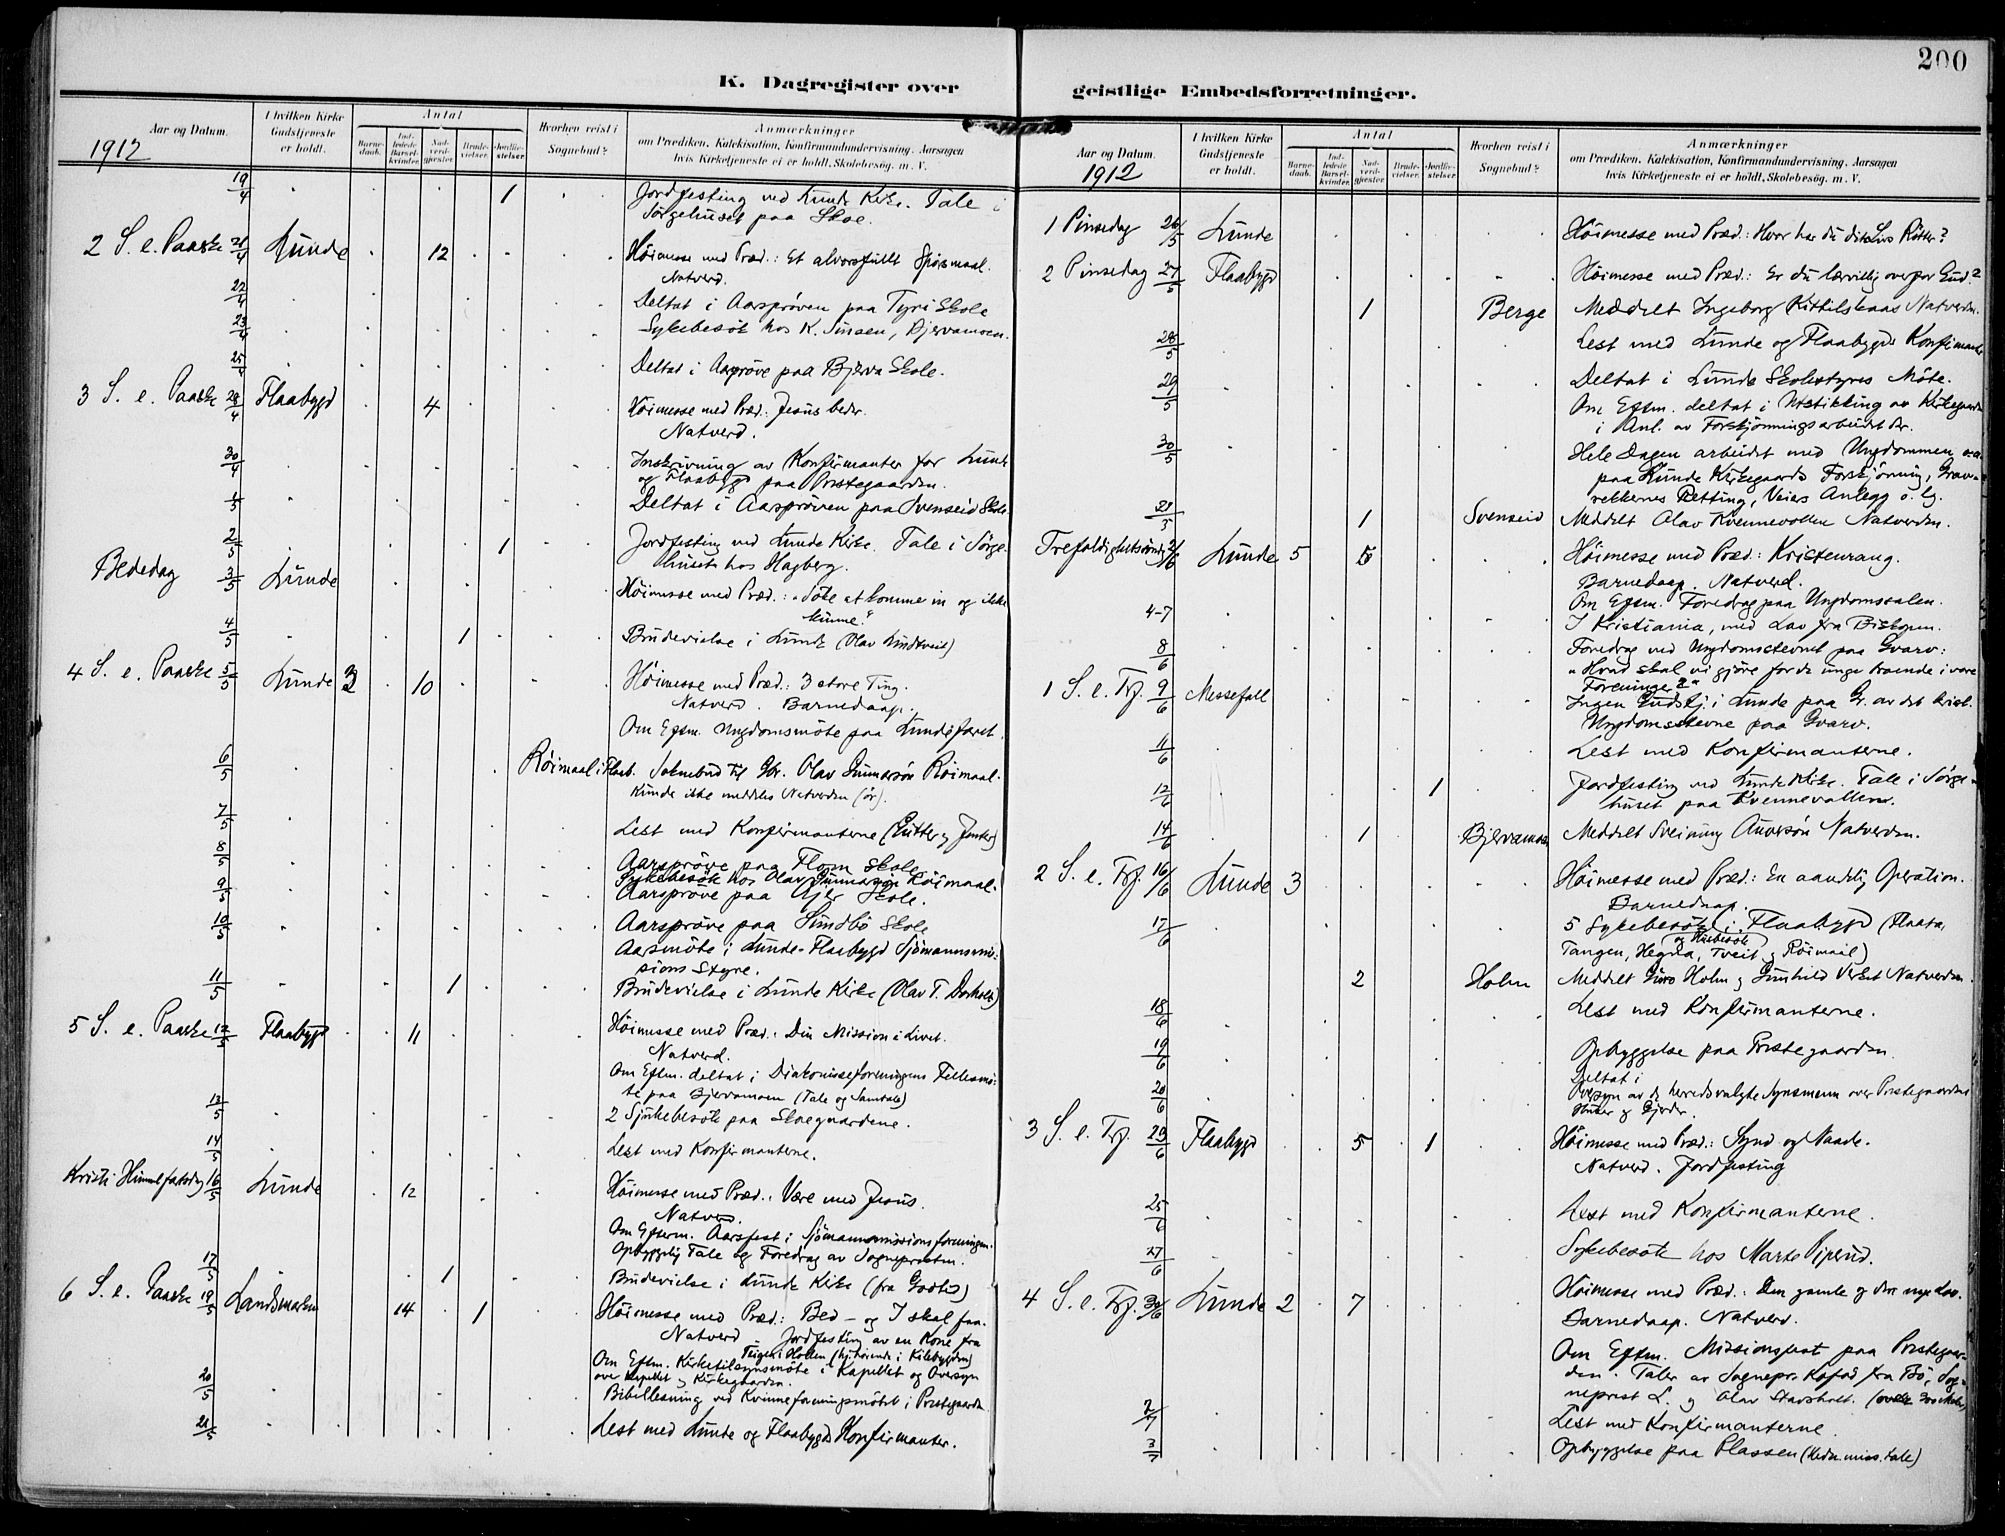 200
K. Dagregister over
geistlige Embedsforretninger.
Aar og Datum.
1912
I hvilken Kirke Gudstjeneste er holdt.
Antal
Barne-daab.
Ind-ledede Barsel-kvinder.
Nad-verd-gjester.
Brude-vielser.
Jordfæ-stelser
Hvorhen reist i Sognebud?
Anmærkninger
om Prædiken, Katekisation, Konfirmandundervisning, Aarsagen
hvis Kirketjeneste ei er holdt, Skolebesøg. m. V.
19/4 1 Jordfesting ved Lunde Kirke. Tale i
Sørgehuset paa Skoe.
2 S. e. Paaske 21/4 Lunde 12 Høimesse med Præd.: Et alvorsfullt Spørsmaal.
Natverd.
22/4 Deltat i Aarsprøven paa Tyri Skole
23/4 Sykebesök hos K. Jensen, Bjervamoen.
25/4 Deltat i Aarsprøve paa Bjerva Skole.
3 S. e. Paaske 28/4 Flaabygd 4 Høimesse med Præd.: Jesus beder.
Natverd.
30/4 Inskrivning av Konfirmanter for Lunde
og Flaabygd paa Prestegaarden.
1/5 Deltat i Aarsprøven paa Svenseid Skole
2/5 1 Jordfesting ved Lunde Kirke. Tale i Sørge-
huset hos Hagberg.
Bededag 3/5 Lunde Høimesse med Præd.: "Søke at komme in og ikke
kunne."
4/5 1 Brudevielse i Lunde (Olav Lundtveit)
4 S. e. Paaske 5/5 Lunde 3 10 Høimesse med Præd.: 3 store Ting.
Natverd. Barnedaap.
Om Eftm. Ungdomsmøte paa Lundefaret.
6/5 Røimaal i Flaab. Soknebud til Gbr. Olav Gunnarsön Röimaal.
Kunde ikke meddeles Natverden (ør).
7/5 Lest med Konfirmanterne (Gutter og Jenter)
8/5 Aarsprøve paa Flom Skole
Sykebesök hos Olav Gunnarsøn Röimaal.
9/5 Aarsprøve paa Ajer Skole.
10/5 Aarsprøve paa Sundbö Skole
Aarsmöte i Lunde-Flaabygd Sjömannsmis-
sions Styre.
11/5 1 Brudevielse i Lunde Kirke (Olav T. Dorholt)
5 S. e. Paaske 12/5 Flaabygd 11 Høimesse med Præd.: Din Mission i Livet.
Natverd.
Om Eftm. deltat i Diakonisseforeningens Fellesmö-
te paa Bjervamoen (Tale og Samtale)
13/5 2 Sjukebesök paa Skoegaardene.
14/5 Lest med Konfirmanterne.
Kristi Himmelfartsdag 16/5 Lunde 12 Høimesse med Præd.: Være med Jesus.
Natverd.
Om Efterm. Aarsfest i Sjömannsmissionsforeningen.
Opbyggelig Tale og Foredrag av Sogneprdsten.
17/5 1 Brudevielse i Lunde Kirke
6 S. e. Paaske 19/5 Landsmarken 14 1 Høimesse med Præd.: Bed – og I skal faa.
Natverd Jordfesting av en Kone fra
Teigen i Hollen (hjhörende i Kilebygden)
Om Eftm. Kirketilsynsmöte i Kapellet og Oversyn
over Kapellet og Kirkegaarden.
20/5 Bibellesning ved Kvinneforeningsmötet i Prestegaarden
21/5 Lest med Lunde og Flaabygds Konfirmanter.
Aar og Datum.
1912
I hvilken Kirke Gudstjeneste er holdt.
Antal
Barne-daab.
Ind-ledede Barsel-kvinder.
Nad-verd-gjester.
Brude-vielser.
Jordfæ-stelser
Hvorhen reist i Sognebud?
Anmærkninger
om Prædiken, Katekisation, Konfirmandundervisning, Aarsagen
hvis Kirketjeneste ei er holdt, Skolebesøg. m. V.
1 Pinsedag 26/5 Lunde Høimesse med Præd.: Hvor har du dit Livs Røtter?
2 Pinsedag 27/5 Flaabygd Høimesse med Præd.: Er du lærvillig overfor Gud?
1 Berge Meddelt Ingeborg Kittilskaas Natverden.
28/5 Lest med Lunde og Flaabygds Konfirmanter
29/5 Deltat i Lunde Skolestyres Möte.
Om Eftm. deltat i Utstikking av Kirkegaarden
i Anl. av Forskjønningsarbeidet der.
30/5 Hele Dagen arbeidet med Ungdommen
paa Lunde Kirkegaards Forskjønning, Grav-
rekkernes Retting, Veiers Anlegg o. lg.
1 Svenseid Meddelt Olav Kvennevollen Natverden.
Trefoldighetssönd. 2/6 Lunde 5 5 Høimesse med Præd.: Kristenrang.
Barnedaap. Natverd.
Om Eftm. Foredrag paa Ungdomssalen.
4-7 I Kristiania, med Lov fra Biskopen.
8/6 Foredrag ved Ungdomsstevnet paa Gvarv:
"Hvad skal vi gjøre for de unge troende i vore
Foreninger?"
1 S. e. Trf. 9/6 Messefall Ingen Gudstj. i Lunde paa Gr. av det kristl.
Ungdomsstevne paa Gvarv.
11/6 Lest med Konfirmanterne.
12/6 1 Jordfesting ved Lunde Kirke. Tale i Sørge-
huset paa Kvennevollen.
14/6 1 Bjervamoen Meddelt Sveinung Auversøn Natverden.
2 S. e. Trf. 16/6 Lunde 3 Høimesse med Præd.: En aandelig Operation.
Barnedaap.
17/6 5 Sykebesök i Flaabygd (Flaata,
og Husbesök
Tangen, Hegna, Tveit og Røimaal)
2 Holm Meddelt Guro Holm og Gunhild Natverden.
18/6 Lest med Konfirmanterne.
19/6 Opbyggelse paa Prestegaarden.
Deltat i
20/6 Oversyn av de herredsvalgte Synsmenn over Prestegaardens
Huser og Gjerder.
3 S. e. Trf. 23/6 Flaabygd 5 1 Høimesse med Præd.: Synd og Naade.
Natverd. Jordfesting
25/6 Lest med Konfirmanterne.
27/6 Sykebesök hos Marte Piperud.
4 S. e. Trf. 30/6 Lunde 2 7 Høimesse med Præd.: Den gamle og den nye Lov.
Barnedaap. Natverd.
Om Eftm. Missionsfest paa Prestegaar-
den. Taler av Sognepr. Kofod fra Bö, Sog-
neprest L. og Olav Stavsholt.
2/7 Lest med Konfirmanterne.
3/7 Opbyggelse paa Plassen (Hedn. miss. tale)